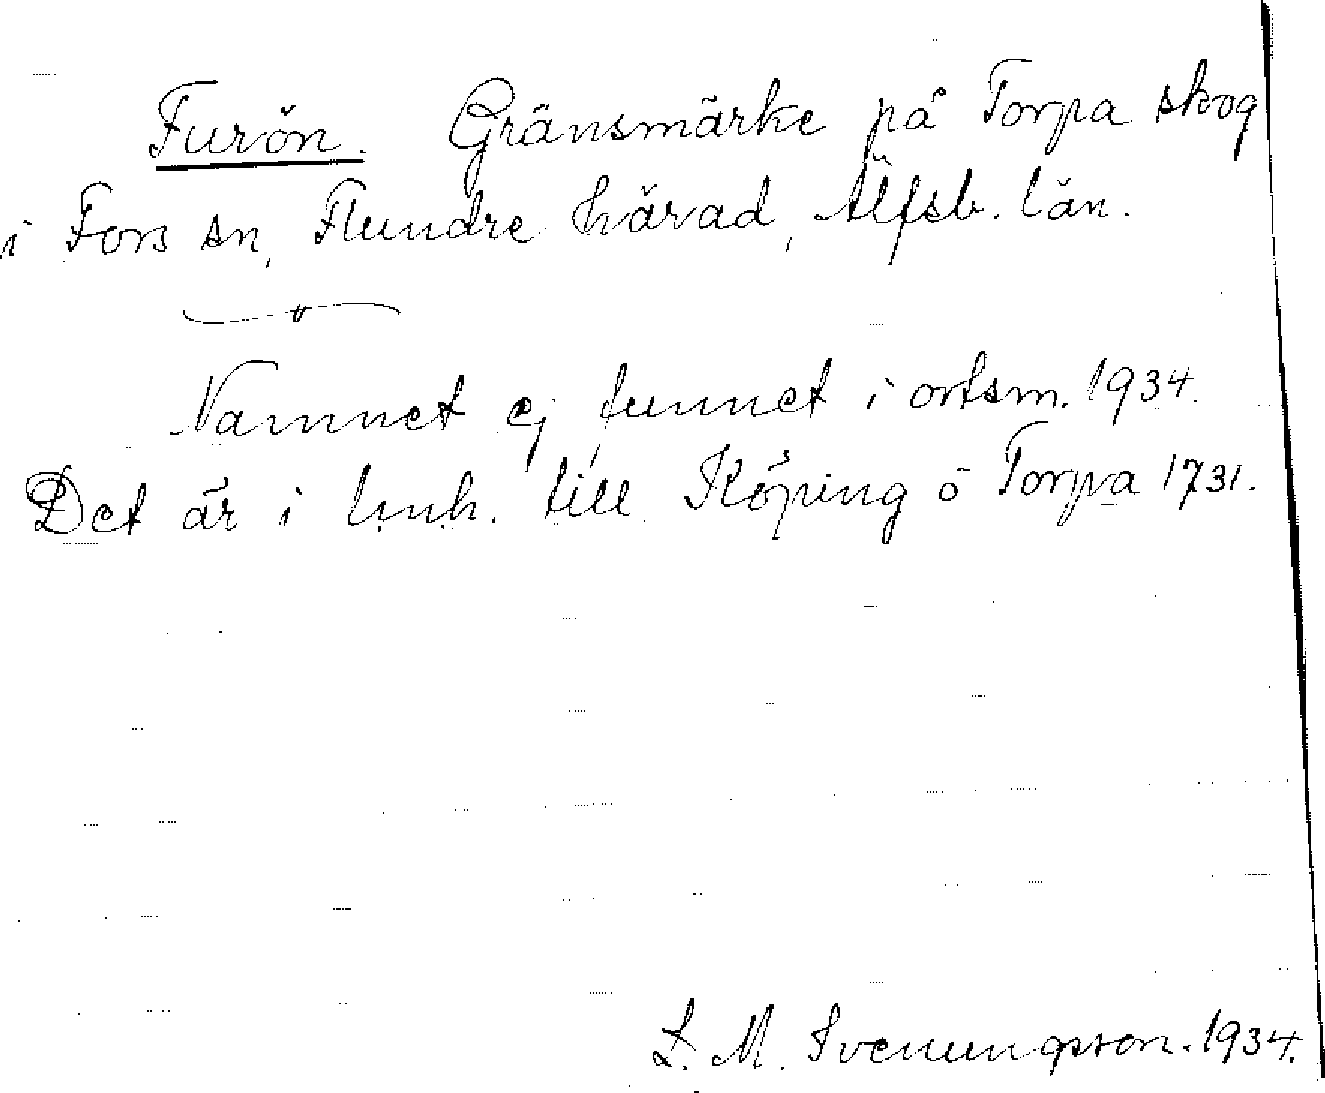 Furön. Gränsmärke på Torpa skog
i Fors sn, Flundre härad, Älfsb. län.
Namnet ej funnet i ortsm. 1934.
Det är i lmh. till Köping o Torpa 1731.
L. M. Svenungsson. 1934.